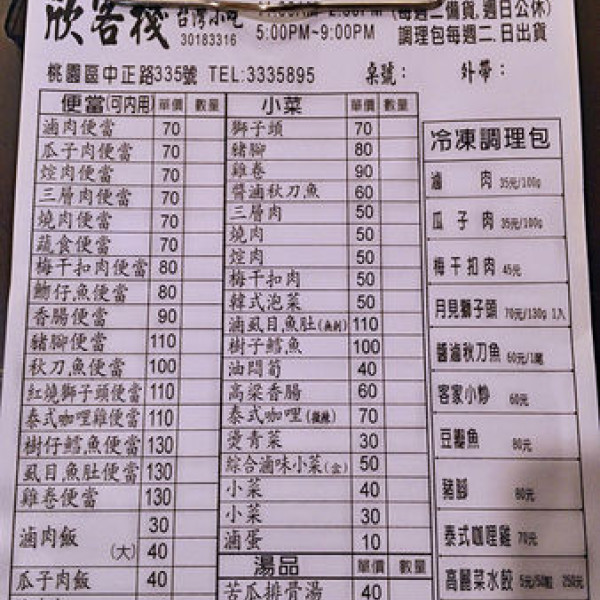 欣客棧 台灣小吃 11:00AM~2:30PM (每週二備貨,週日公休)
30183316 5:00PM~9:00PM 調理包每週二.日出貨
桃園區中正路335號 TEL:3335895 桌號： 外帶：
便當(可內用) 單價 數量
滷肉便當 70
瓜子肉便當 70
焢肉便當 70
三層肉便當 70
燒肉便當 70
蔬食便當 70
梅干扣肉便當 80
魩仔魚便當 80
香腸便當 90
豬腳便當 110
秋刀魚便當 100
紅燒獅子頭便當 110
泰式咖哩雞便當 110
樹仔鱈魚便當 130
虱目魚肚便當 130
雞卷便當 130
滷肉飯 30
(大) 40
瓜子肉飯 40
小菜 單價 數量
獅子頭 70
豬腳 80
雞卷 90
醬滷秋刀魚 60
三層肉 50
燒肉 50
焢肉 50
梅干扣肉 50
韓式泡菜 50
滷虱目魚肚(無刺) 110
樹子鱈魚 100
油悶筍 40
高梁香腸 60
泰式咖哩(微辣) 70
燙青菜 30
綜合滷味小菜(盒) 50
小菜 40
小菜 30
滷蛋 10
湯品 單價 數量
苦瓜排骨湯 40
冷凍調理包
滷肉 35元/100g
瓜子肉 35元/100g
梅干扣肉 45元
月見獅子頭 70元/130g 1入
醬滷秋刀魚 60元/1尾
客家小炒 60元
豆瓣魚 80元
豬腳 80元
泰式咖哩雞 70元
高麗菜水餃 5元/50粒 250元